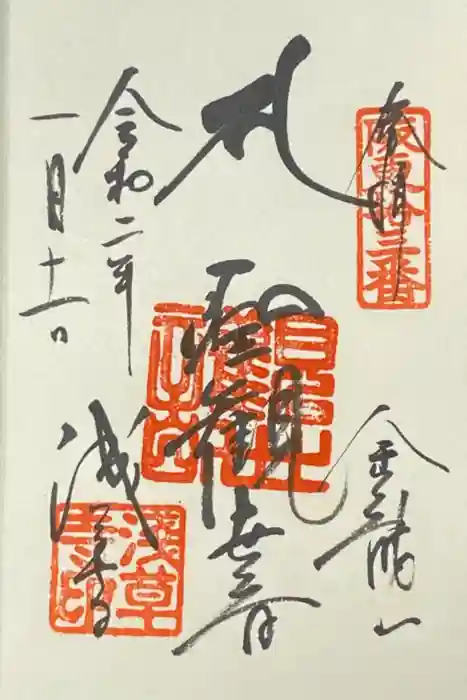 奉拝
坂東拾三番
金龍山
聖観世音
令和二年
一月十一日
浅草寺
浅草寺印